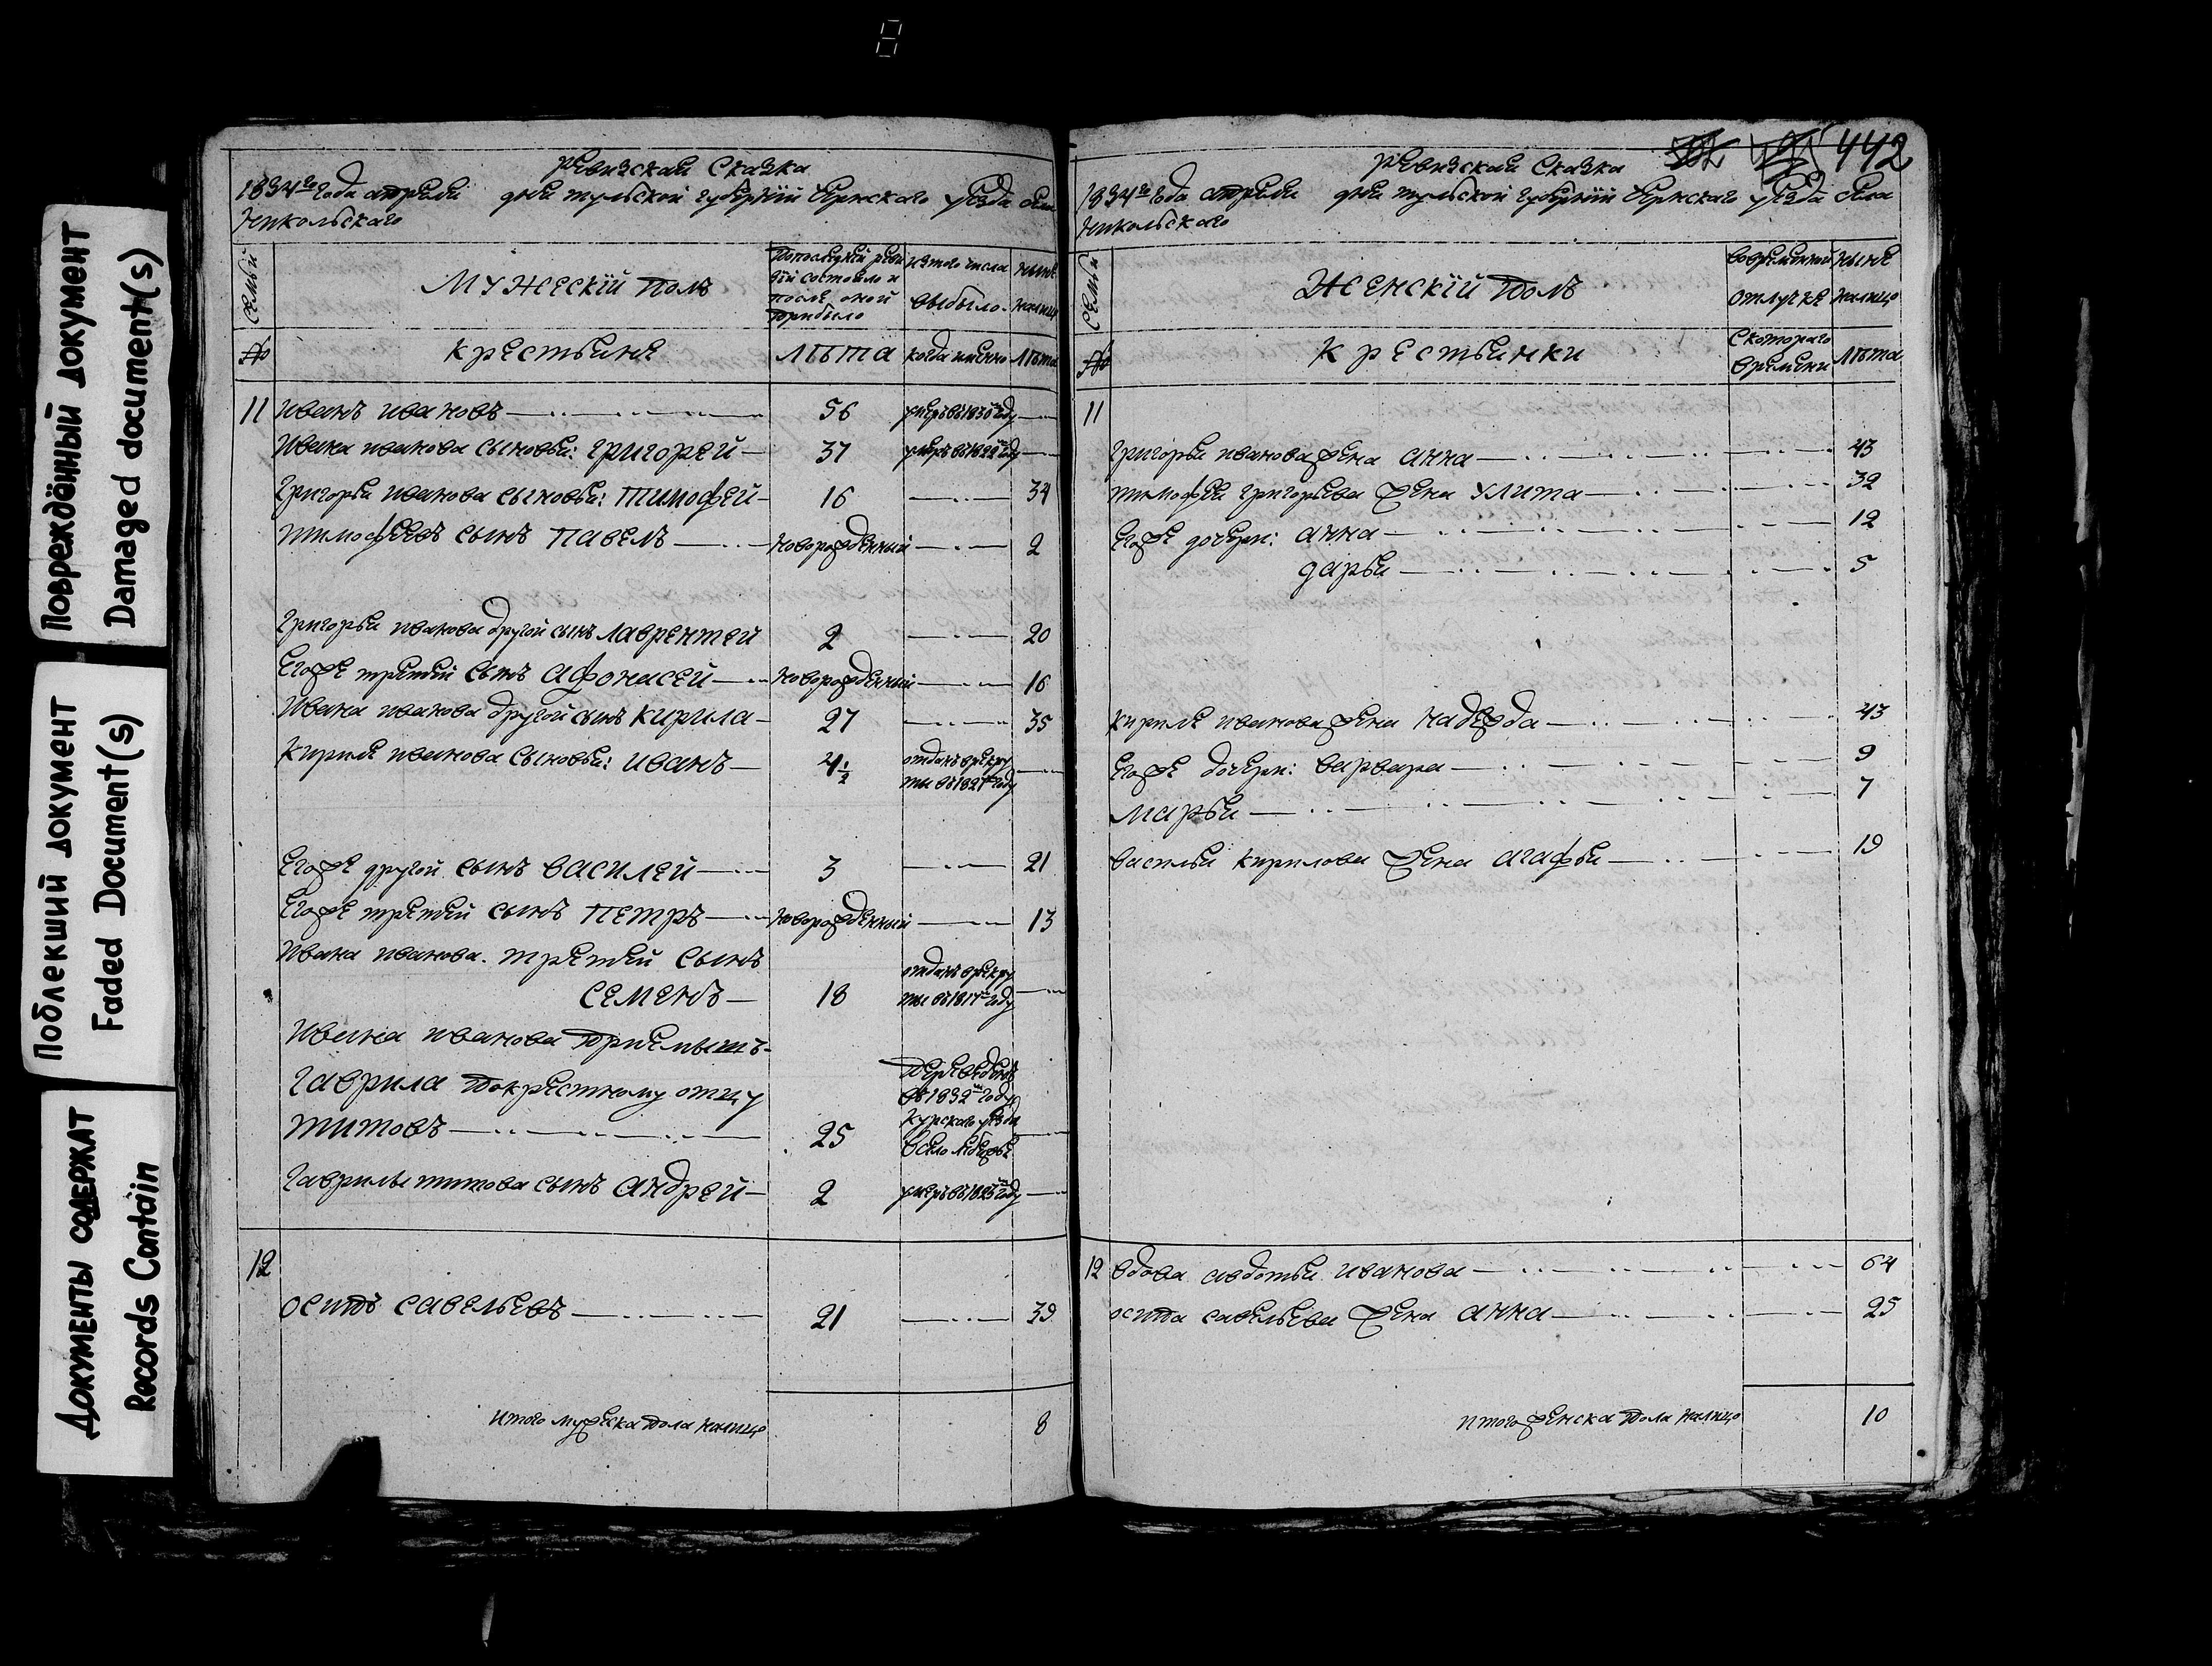 Повреждённый документ
Damaged document(s)
Поблекший документ
Faded Document(s)
Документы содержат
Records Contain
8
Ревизская Сказка
1834го года апреля дня тульской губернии Чернского уезда села
Никольского
семьи
Мужеский полъ
Попоследней реви
зіи состояло и
после оной
прибыло
изтого числа
выбыло.
ныне
налицо
№
крестьяне
лѣта
когда имянно
лѣта
11 Иванъ ивановъ 56 умеръ въ 1830м году
Ивана иванова сыновья: григорей 37 умеръ въ 1822м году
Григорья иванова сыновья: тимофей 16 34
тимофеевъ сынъ павелъ новорожденный 2
Григорья иванова другой сынъ лаврентей 2 20
Егоже третей сынъ афонасей новорожденный 16
Ивана иванова другой сынъ кирила 27 35
Кирилы иванова сыновья: иванъ 4 1/2 отданъ врекру
ты въ 1827м году
Егоже другой сынъ василей 3 21
Егоже третей сынъ петръ новорожденный 13
Ивана иванова. третей сынъ
семенъ 18 отданъ врекру
ты въ 1817м году
Ивана иванова приемышъ
гаврила покрестному отцу
титовъ 25 переведенъ
въ 1832м году
Курскаго уезда
в село
Гаврилы титова сынъ андрей 2 умеръ въ 1825м году
12
осипъ савельевъ 21 39
Итого мужеска пола налицо 8
442
Ревизская Сказка
1834го года апреля дня тульской губернии Чернского уезда села
Никольскаго
семьи
Женскій полъ
вовременной
отлучке
ныне
налицо
№
крестьянки
Скотораго
времени
лѣта
11
Григорья иванова жена анна 43
тимофея григорьева жена улита 32
Егоже дочери: анна 12
дарья 5
Кирилы иванова жена надежда 43
Егоже дочери: варвара 9
марья 7
Василья кирилова жена агафья 19
12 вдова авдотья иванова 64
осипа савельева жена анна 25
Итого женска пола налицо 10